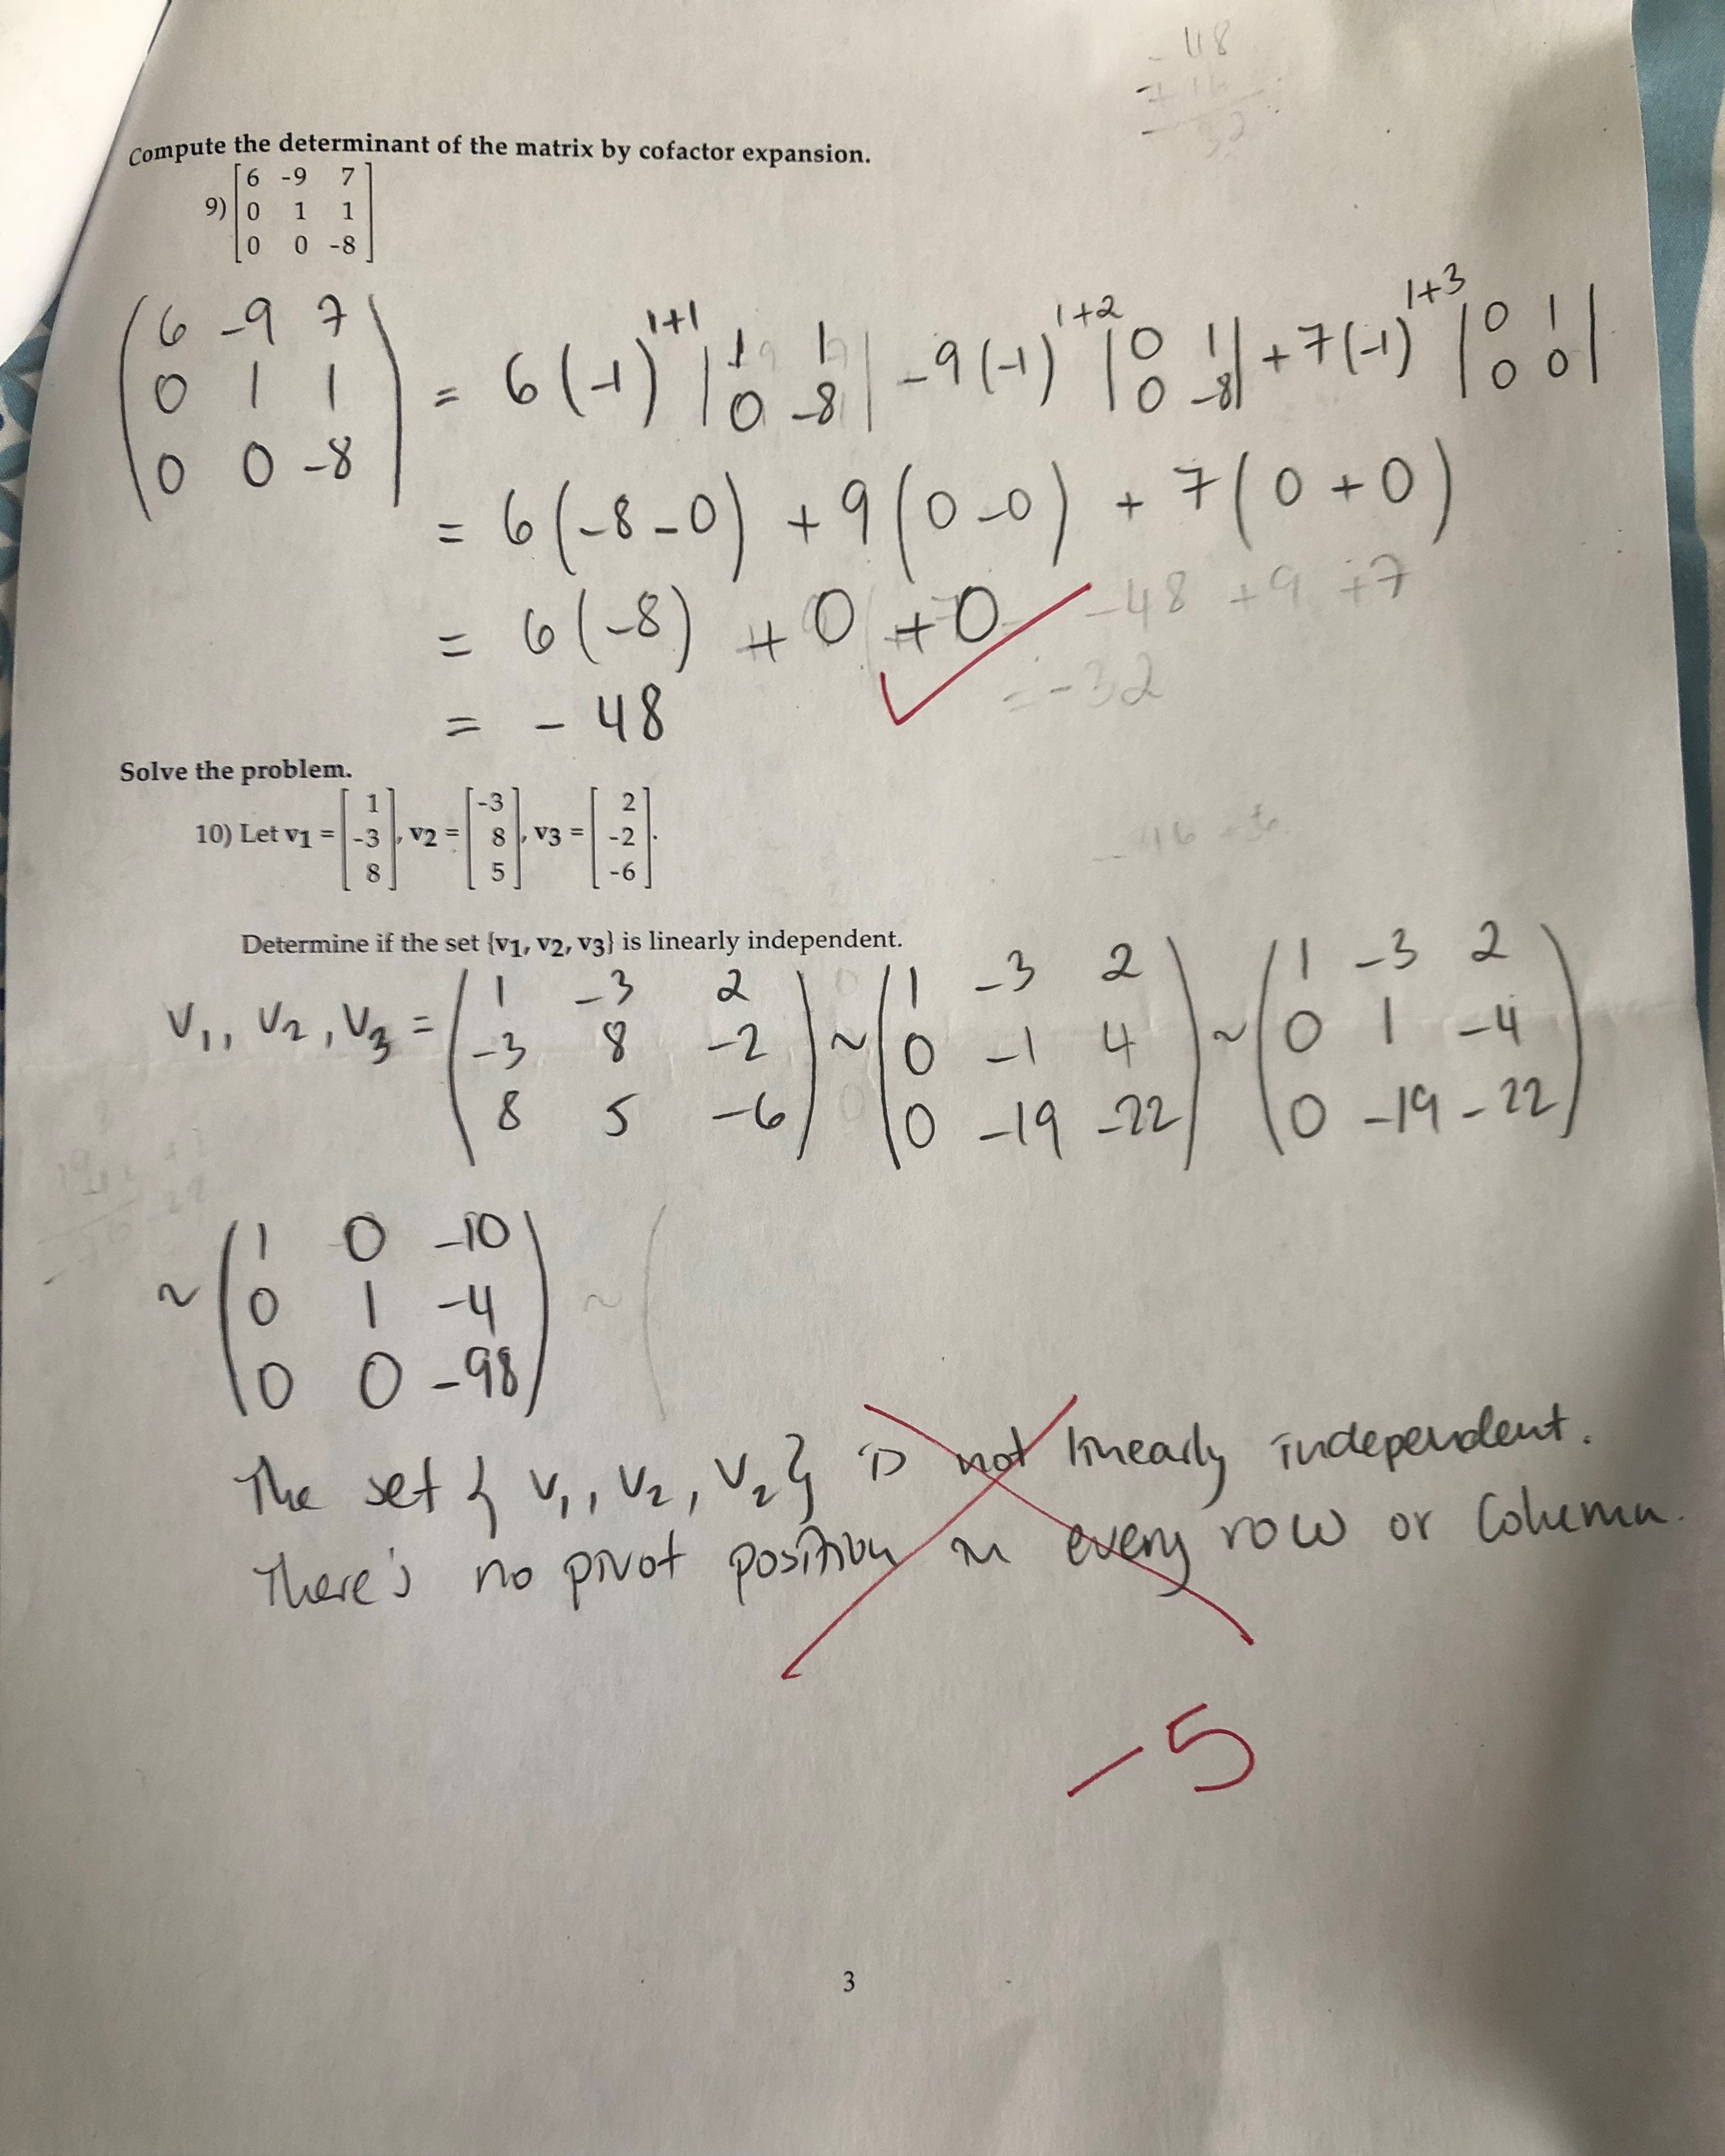 - 48
+ 16
32
Compute the determinant of the matrix by cofactor expansion.
9) [6 -9 7]
[0 1 1]
[0 0 -8]
(6 -9 7)
(0 1 1)
(0 0 -8)
= 6(-1)^1+1 |1 1| -9(-1)^1+2 |0 1| + 7(-1)^1+3 |0 1|
|0 -8| |0 -8| |0 0|
= 6(-8-0) + 9(0-0) + 7(0+0)
= 6(-8) + 0 + 0 -48 +9 +7
= -32
= - 48
Solve the problem.
10) Let v1 = [1 -3 8], v2 = [-3 8 5], v3 = [2 -2 -6].
Determine if the set {v1, v2, v3} is linearly independent.
V1, V2, V3 = (1 -3 2) ~ (1 -3 2) ~ (1 -3 2)
(-3 8 -2) (0 -1 4) (0 1 -4)
(8 5 -6) (0 -19 -22) (0 -19 -22)
~ (1 0 -10) ~ (
(0 1 -4)
(0 0 -98)
The set { V1, V2, V2 } is not linearly independent.
There's no pivot position in every row or column.
-5
3